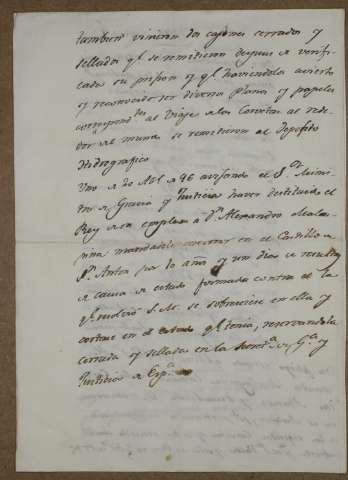 tambien vinieron dos cajones cerrados y
sellados qe se remitieron despues de verifi-
cada su prision y qe haviendolos avierto
y reconocido ser diversos Planos y papeles
correspondtes al Viaje de las Corvetas al rede-
dor del mundo se remitieron al Deposito
Hidrografico
Uno de 20 Abl de 96 avisando el Sor Minis-
tro de Gracia y Justicia haver destituido el
Rey de su empleo a Dn Alexandro Malas-
pina mandadole encerrar en el Castillo de
Sn Anton por 10 años y un dia de resultas
de causa de estado formada contra el la
qe resolvió S.M. se sobreseiese en ella y
cortase en el estado qe tenia, reservandola
cerrada y sellada en la Secreta de Ga y
Justicia de Espa